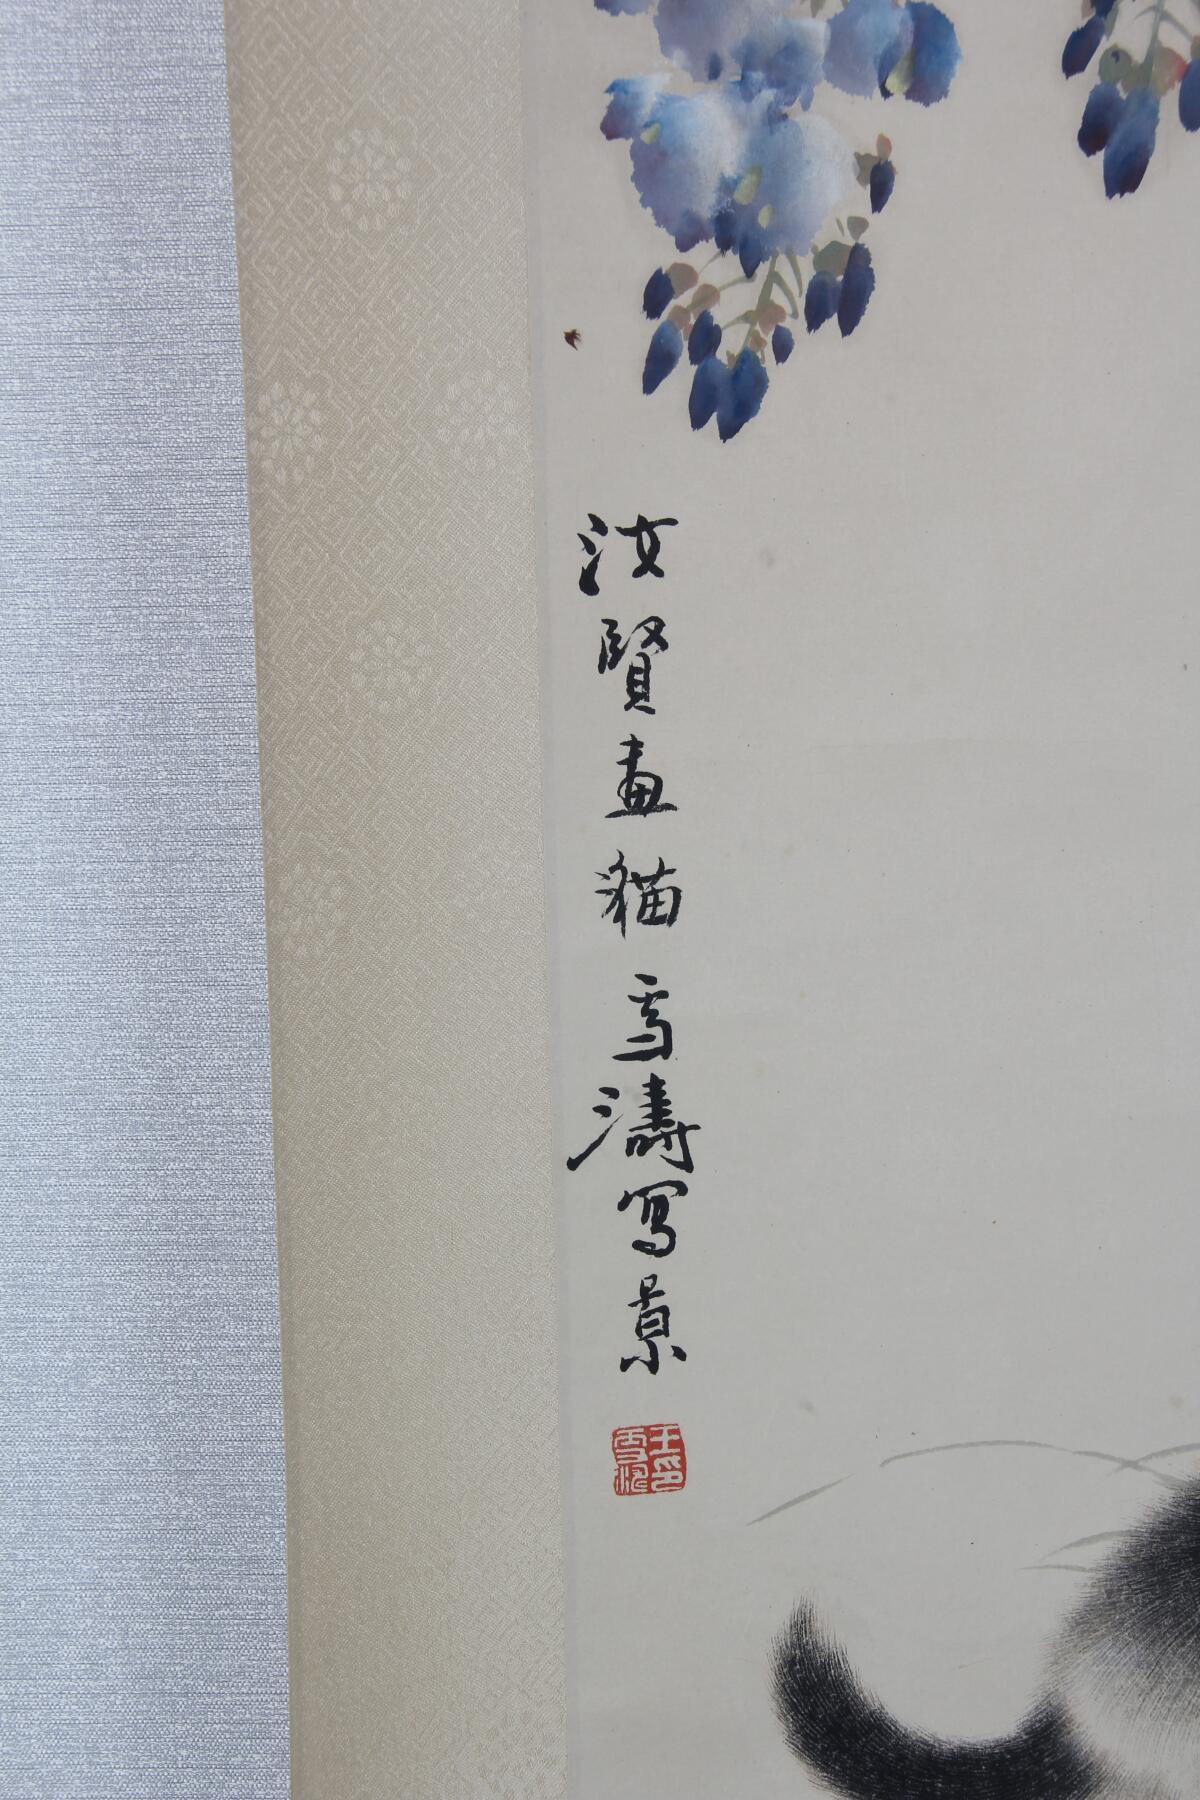 汝賢畫貓雪濤写景
王雪濤印